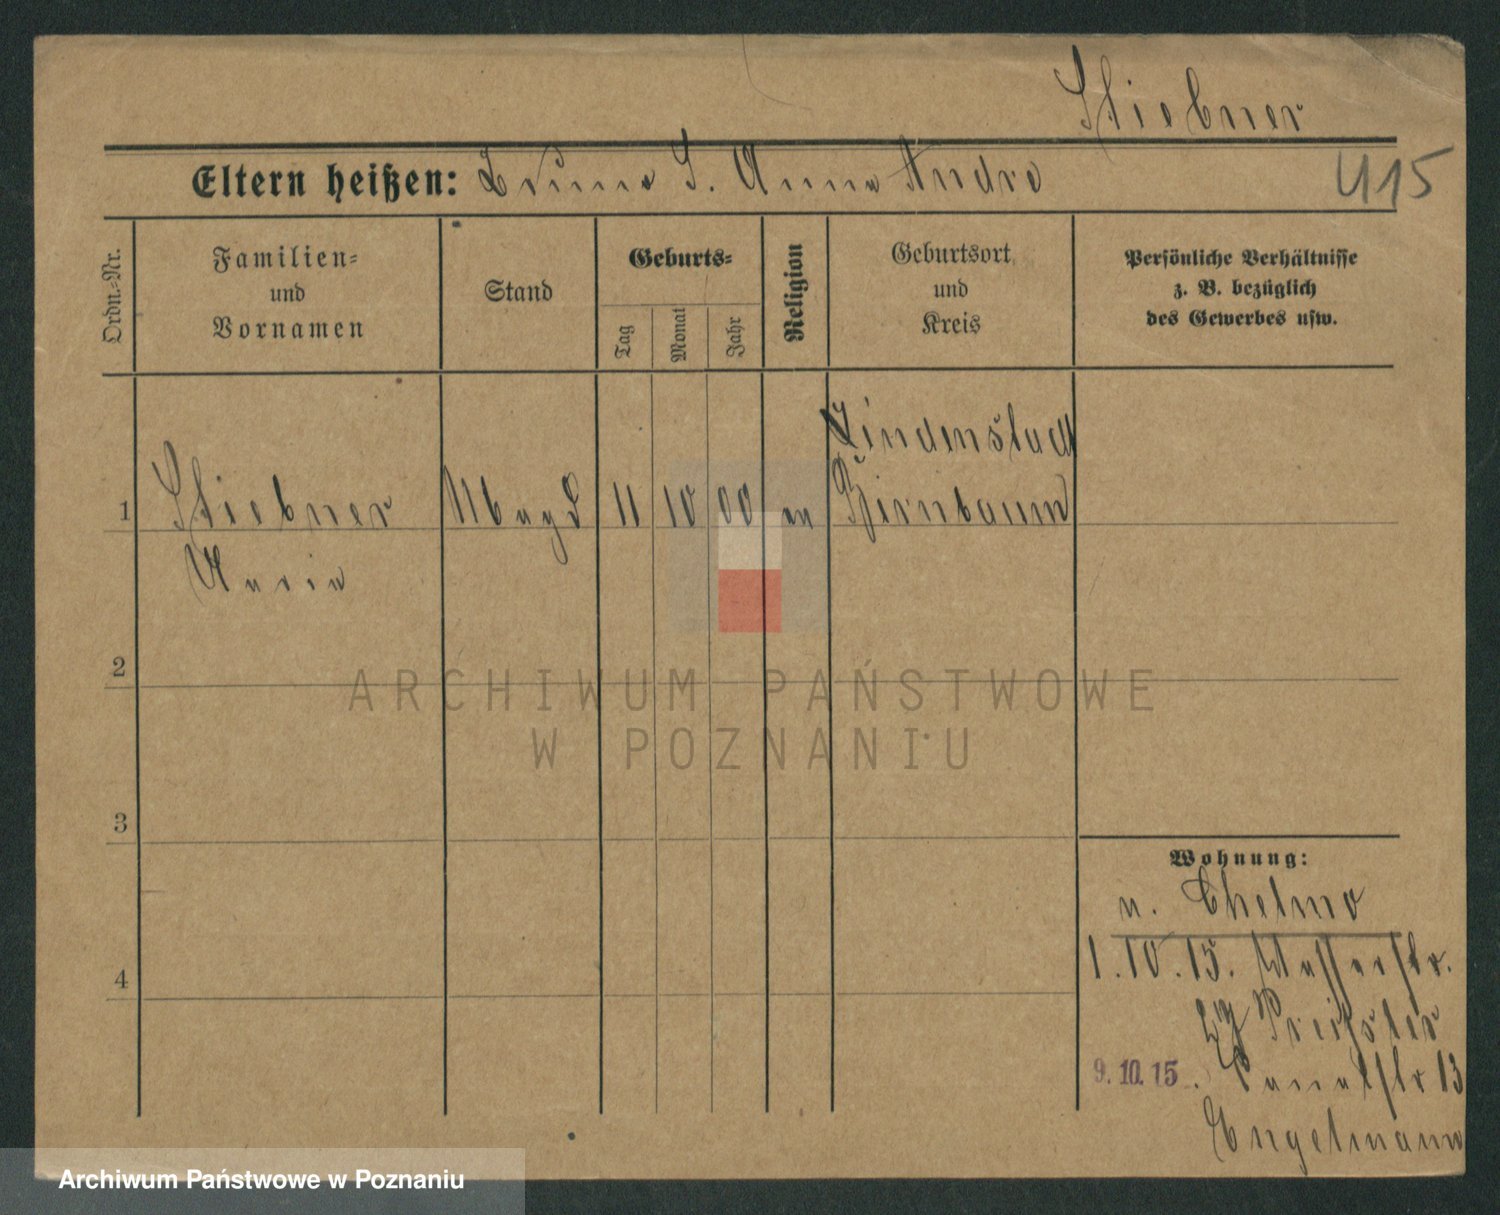 Stiebner
Eltern heißen: Bruno S. Anna Andre
415
Ordn.-Nr.
Familien-
und
Vornamen
Stand
Geburts-
Tag
Monat
Jahr
Religion
Geburtsort
und
Kreis
Persönliche Verhältnisse
z. B. bezüglich
des Gewerbes usw.
Lindenstadt
1 Stiebner Magd 11 10 00 ev Birnbaum
Maria
2
3
4
Wohnung:
n. Chelmo
1.10.15. Wasserstr.
Priester
9.10.15. Kanalstr 13
Engelmann
ARCHIWUM PAŃSTWOWE
W POZNANIU
Archiwum Państwowe w Poznaniu